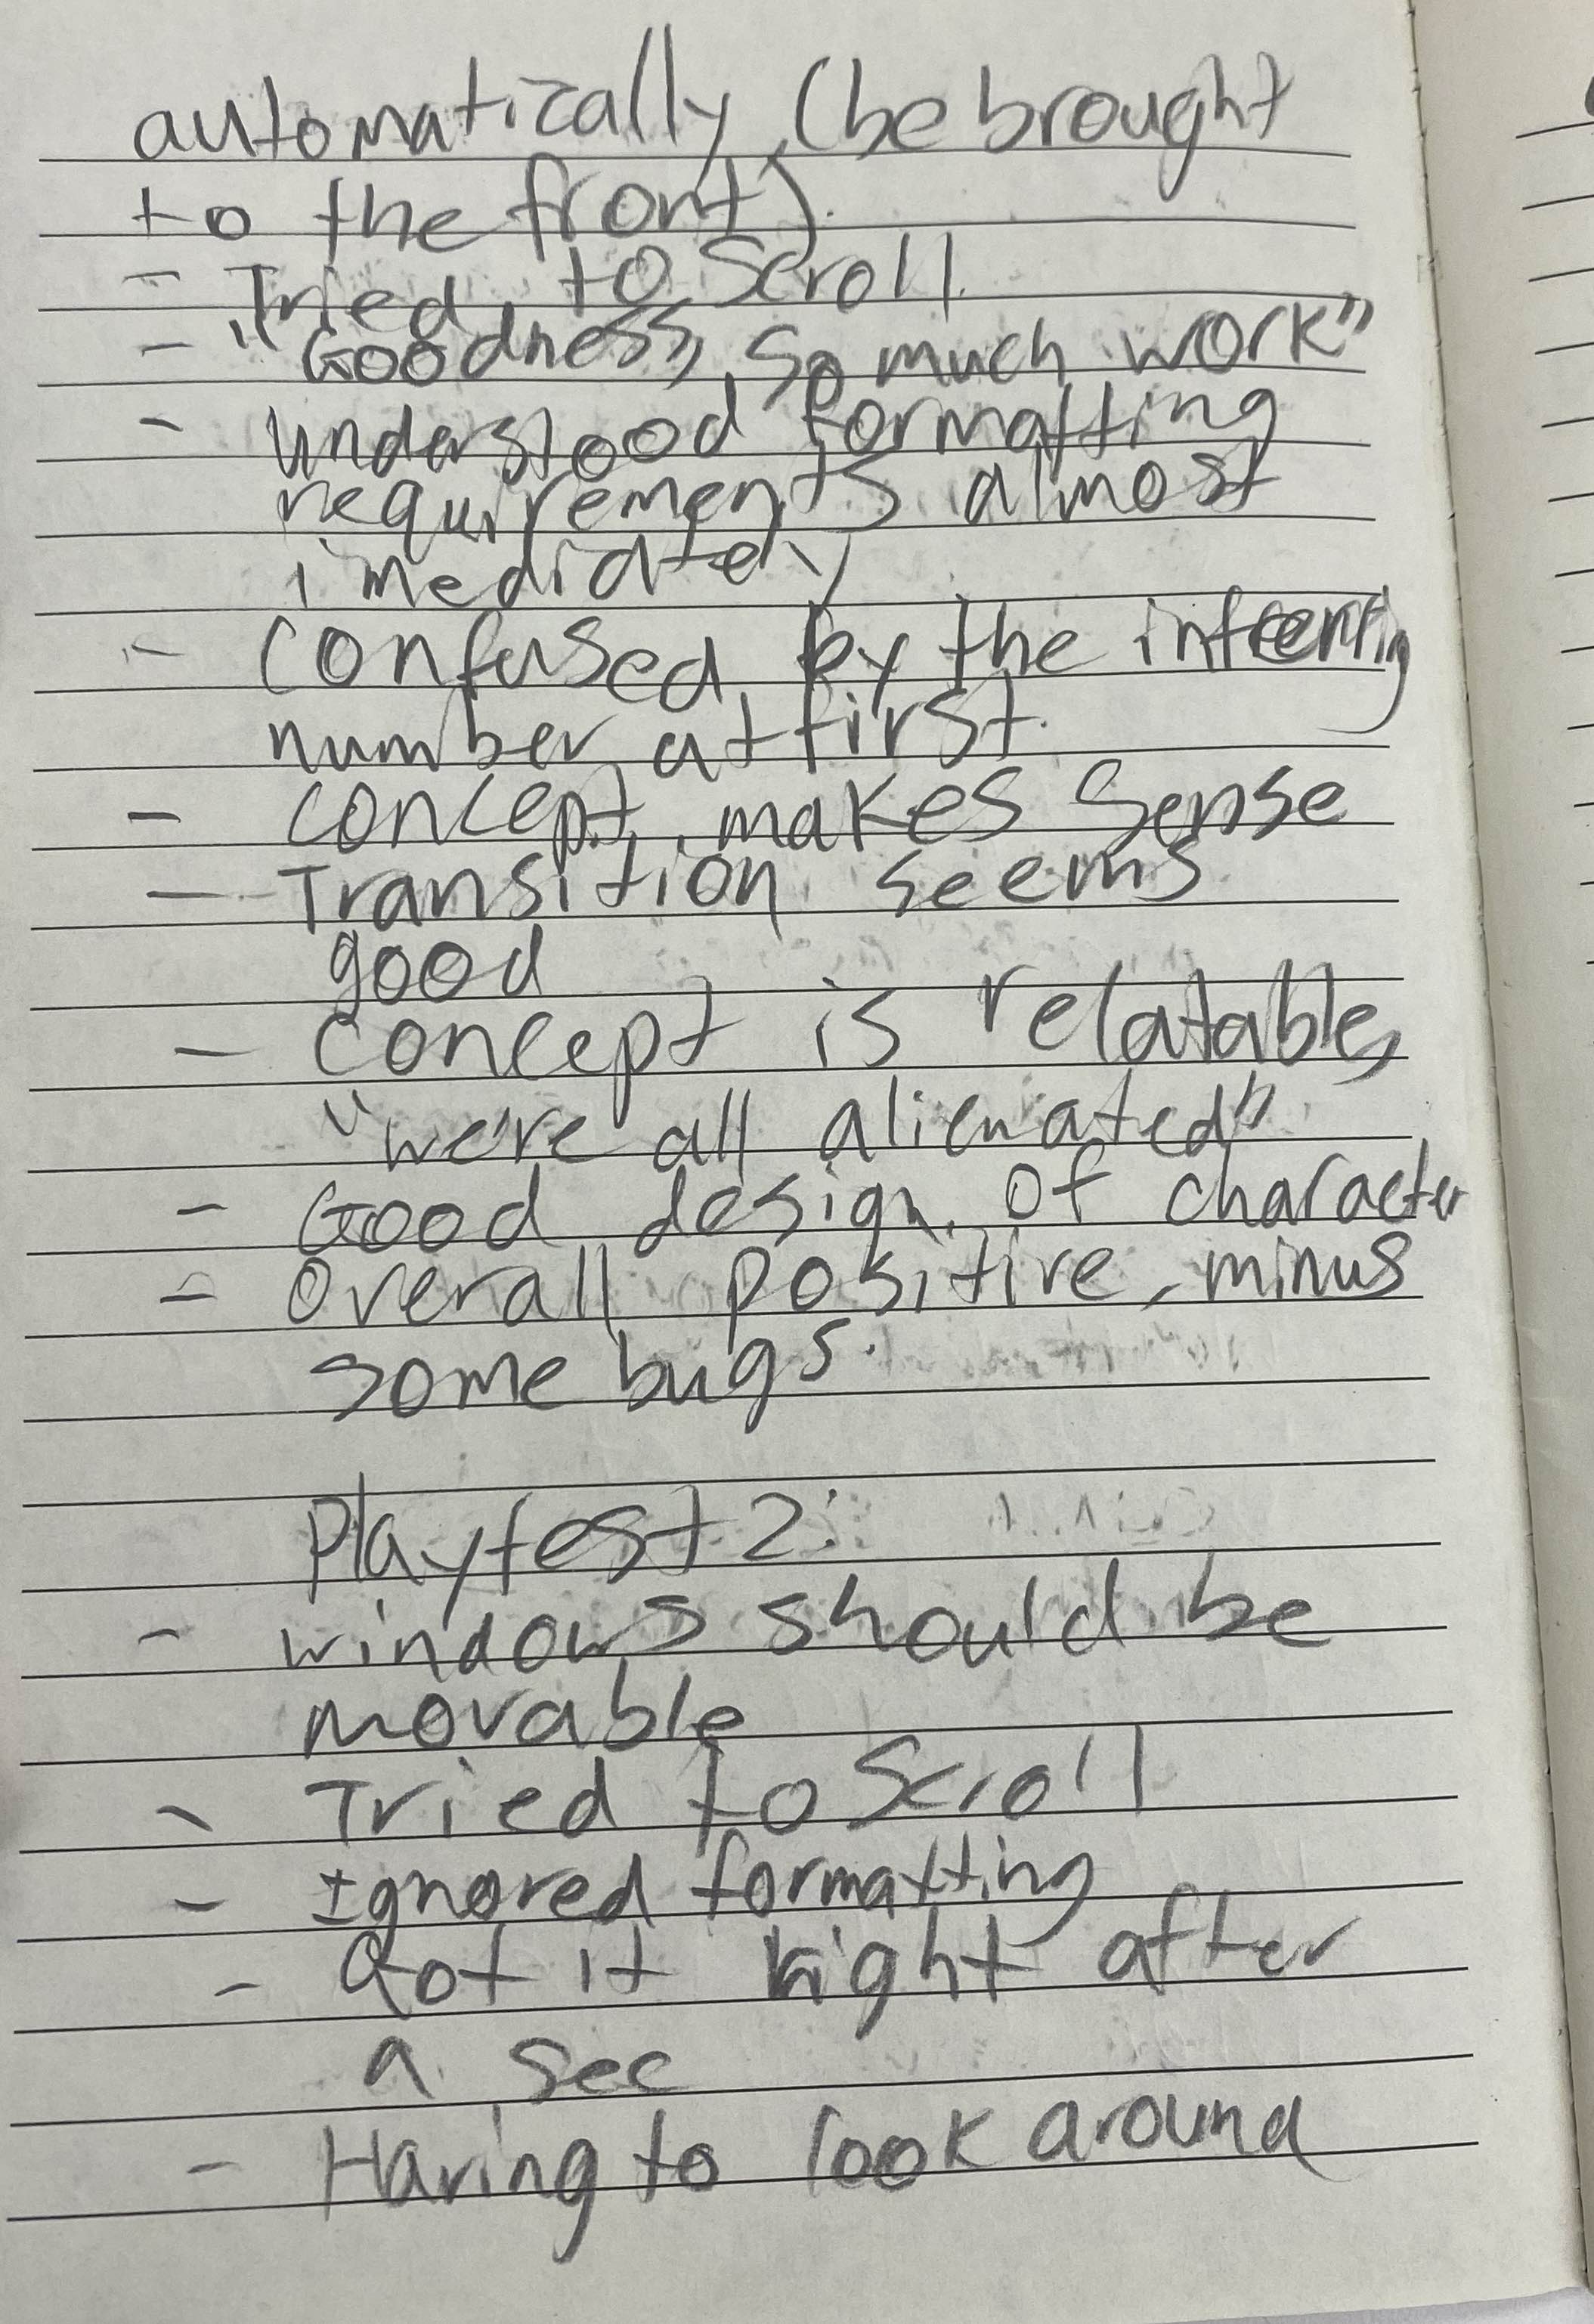 automatically (be brought
to the front).
- Tried to scroll.
- "Goodness, so much work"
- understood formatting
requirements almost
imediately
- confused by the
number at first.
- concept makes sense
- Transition seems
good
- concept is relatable,
"we're all alienated"
- Good design of character
- overall positive, minus
some bugs.
Playtest 2:
- windows should be
movable
- Tried to scroll
- Ignored formatting
- Got it right after
a sec
- Having to look around